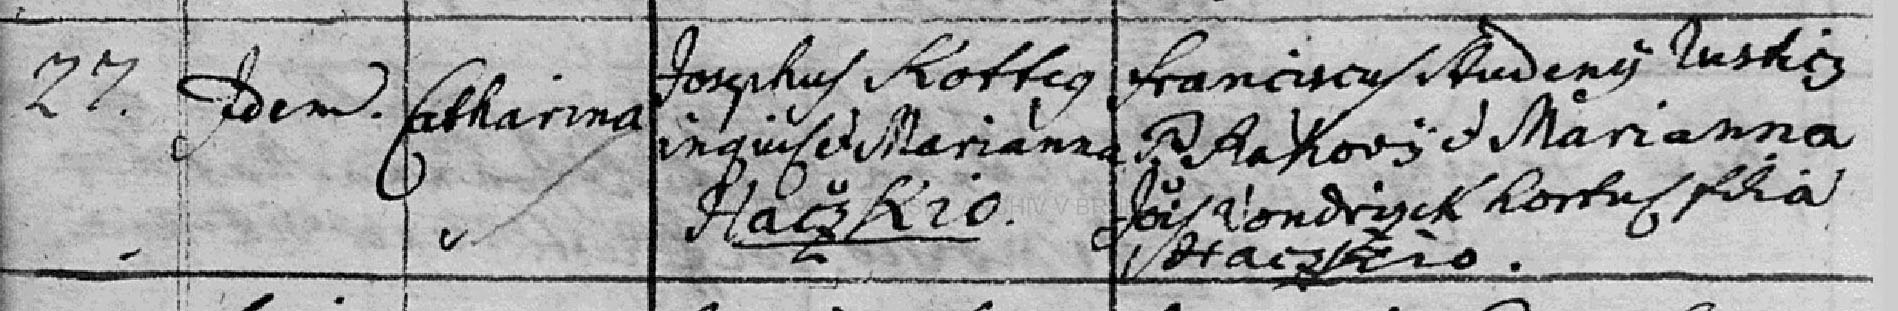 27. Idem. Catharina
Josephus Kotteg
inquis et Marianna
Haczkio.
Franciscus Studený Rustici
P. Rakový et Marianna
Jois Vondrysek hortus filia
Haczkio.